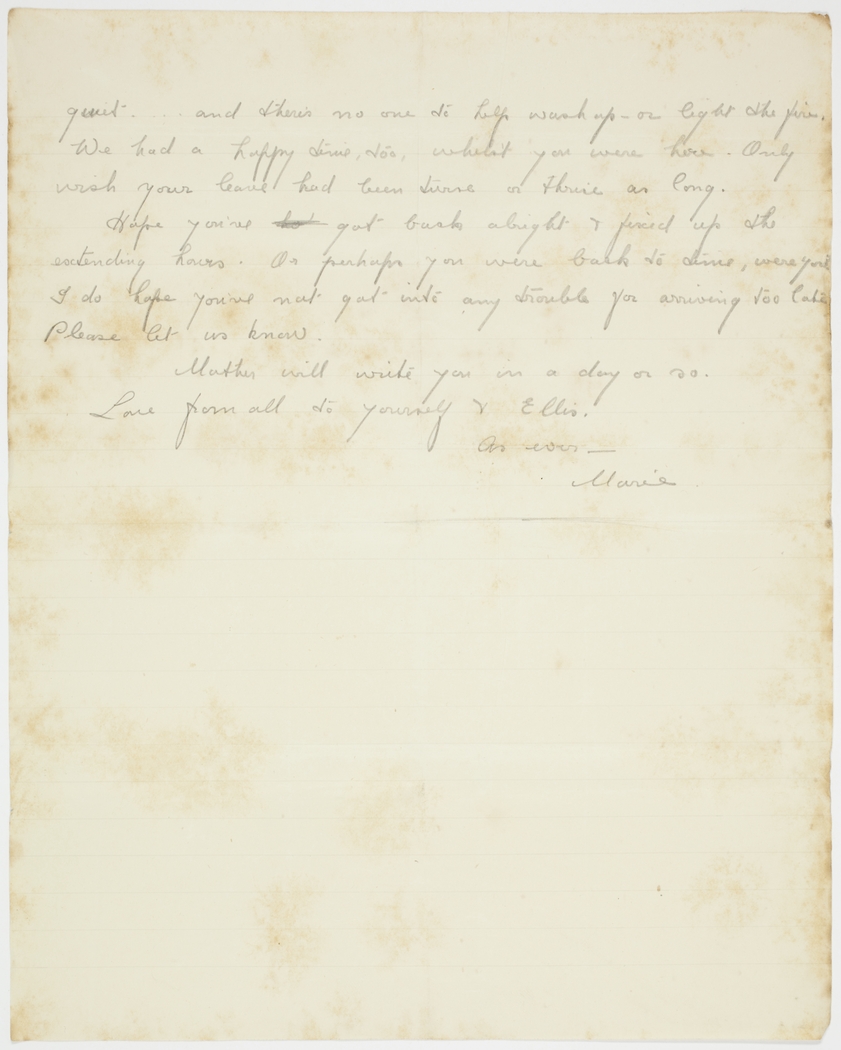 quiet. ... and there's no one to help wash up - or light the fire.
We had a happy time, too, whilst you were here. Only
wish your leave had been twice or thrice as long.
Hope you've got back alright & fixed up the
extending hours. Or perhaps you were back to time, were you?
I do hope you've not got into any trouble for arriving too late.
Please let us know.
Mother will write you in a day or so.
Love from all to yourself & Ellis.
As ever —
Marie